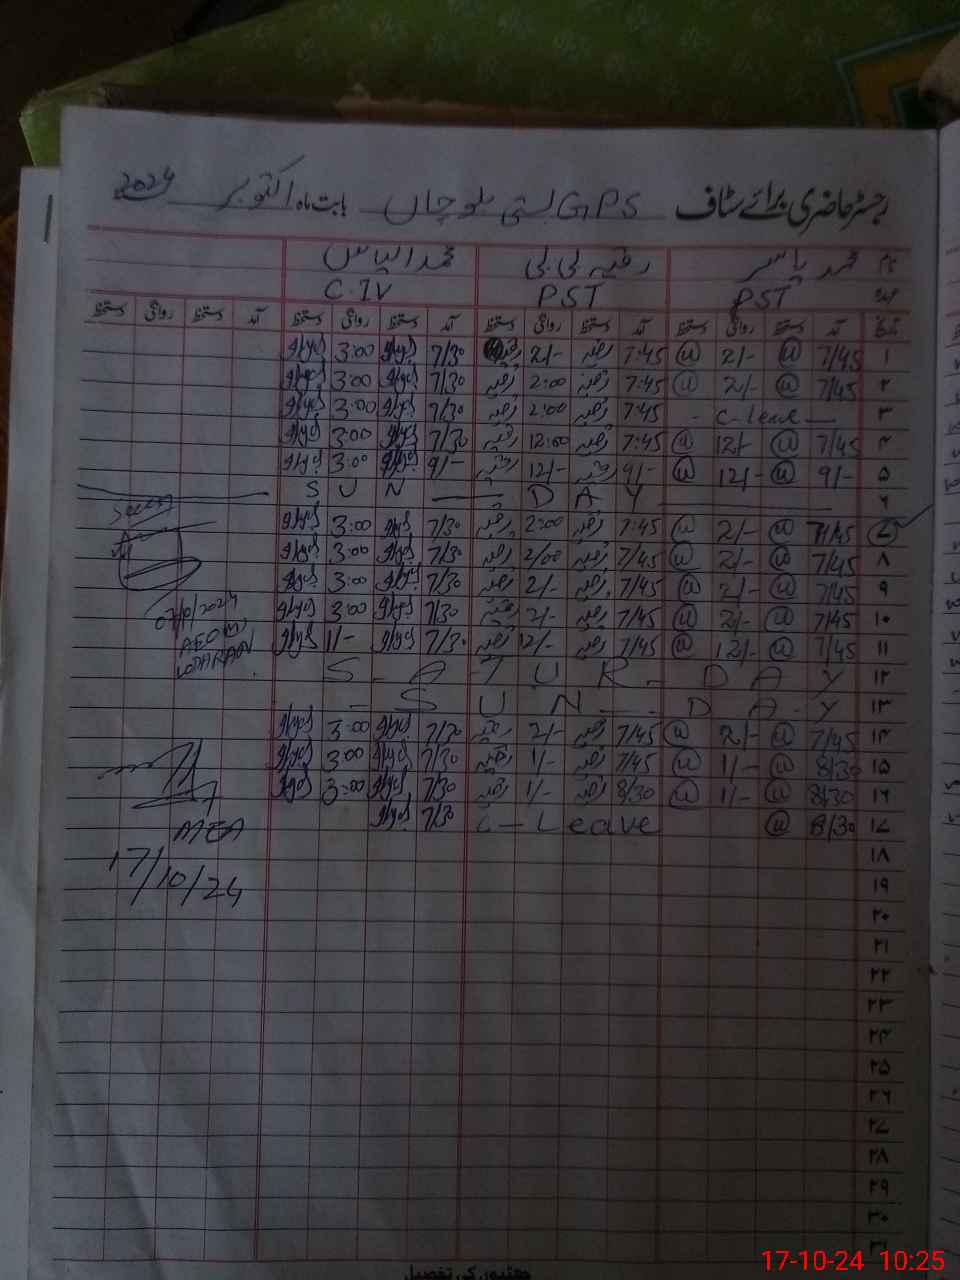 رجسٹر حاضری برائے سٹاف GPS بستی بلوچاں بابت ماہ اکتوبر 2024
نام محمد یاسر رقیہ بی بی محمد الیاس
عہدہ PST PST C.IV
تاریخ آمد دستخط روانگی دستخط آمد دستخط روانگی دستخط آمد دستخط روانگی دستخط آمد دستخط روانگی دستخط
۱ 7/45 2/- 7:45 رقیہ 2/- 7/30 3:00
۲ 7/45 2/- 7:45 رقیہ 2:00 رقیہ 7/30 3:00
۳ - C-Leave - 7:45 رقیہ 2:00 رقیہ 7/30 3:00
۴ 7/45 12/- 7:45 رقیہ 12:00 رقیہ 7/30 3:00
۵ 9/- 12/- 9/- رقیہ 12/- رقیہ 9/- 3:00
۶ S U N - D A Y
۷ 7/45 2/- 7:45 رقیہ 2:00 رقیہ 7/30 3:00
۸ 7/45 2/- 7/45 رقیہ 2/00 رقیہ 7/30 3:00
۹ 7/45 2/- 7/45 رقیہ 2/- رقیہ 7/30 3:00
۱۰ 7/45 2/- 7/45 رقیہ 2/- رقیہ 7/30 3:00
07/10/2024
۱۱ 7/45 12/- 7/45 رقیہ 12/- رقیہ 7/30 1/-
AEO (M)
LODHRAN
۱۲ S - A - T U R - D A Y
۱۳ - S U N - D - A - Y
۱۴ 7/45 2/- 7/45 رقیہ 2/- رقیہ 7/30 3:00
۱۵ 8/30 1/- 7/45 رقیہ 1/- رقیہ 7/30 3:00
۱۶ 8/30 1/- 8/30 رقیہ 1/- رقیہ 7/30 3:00
۱۷ 8/30 C - Leave 7/30
MEA
17/10/24
۱۸
۱۹
۲۰
۲۱
۲۲
۲۳
۲۴
۲۵
۲۶
۲۷
۲۸
۲۹
۳۰
۳۱
چھٹیوں کی تفصیل
17-10-24 10:25